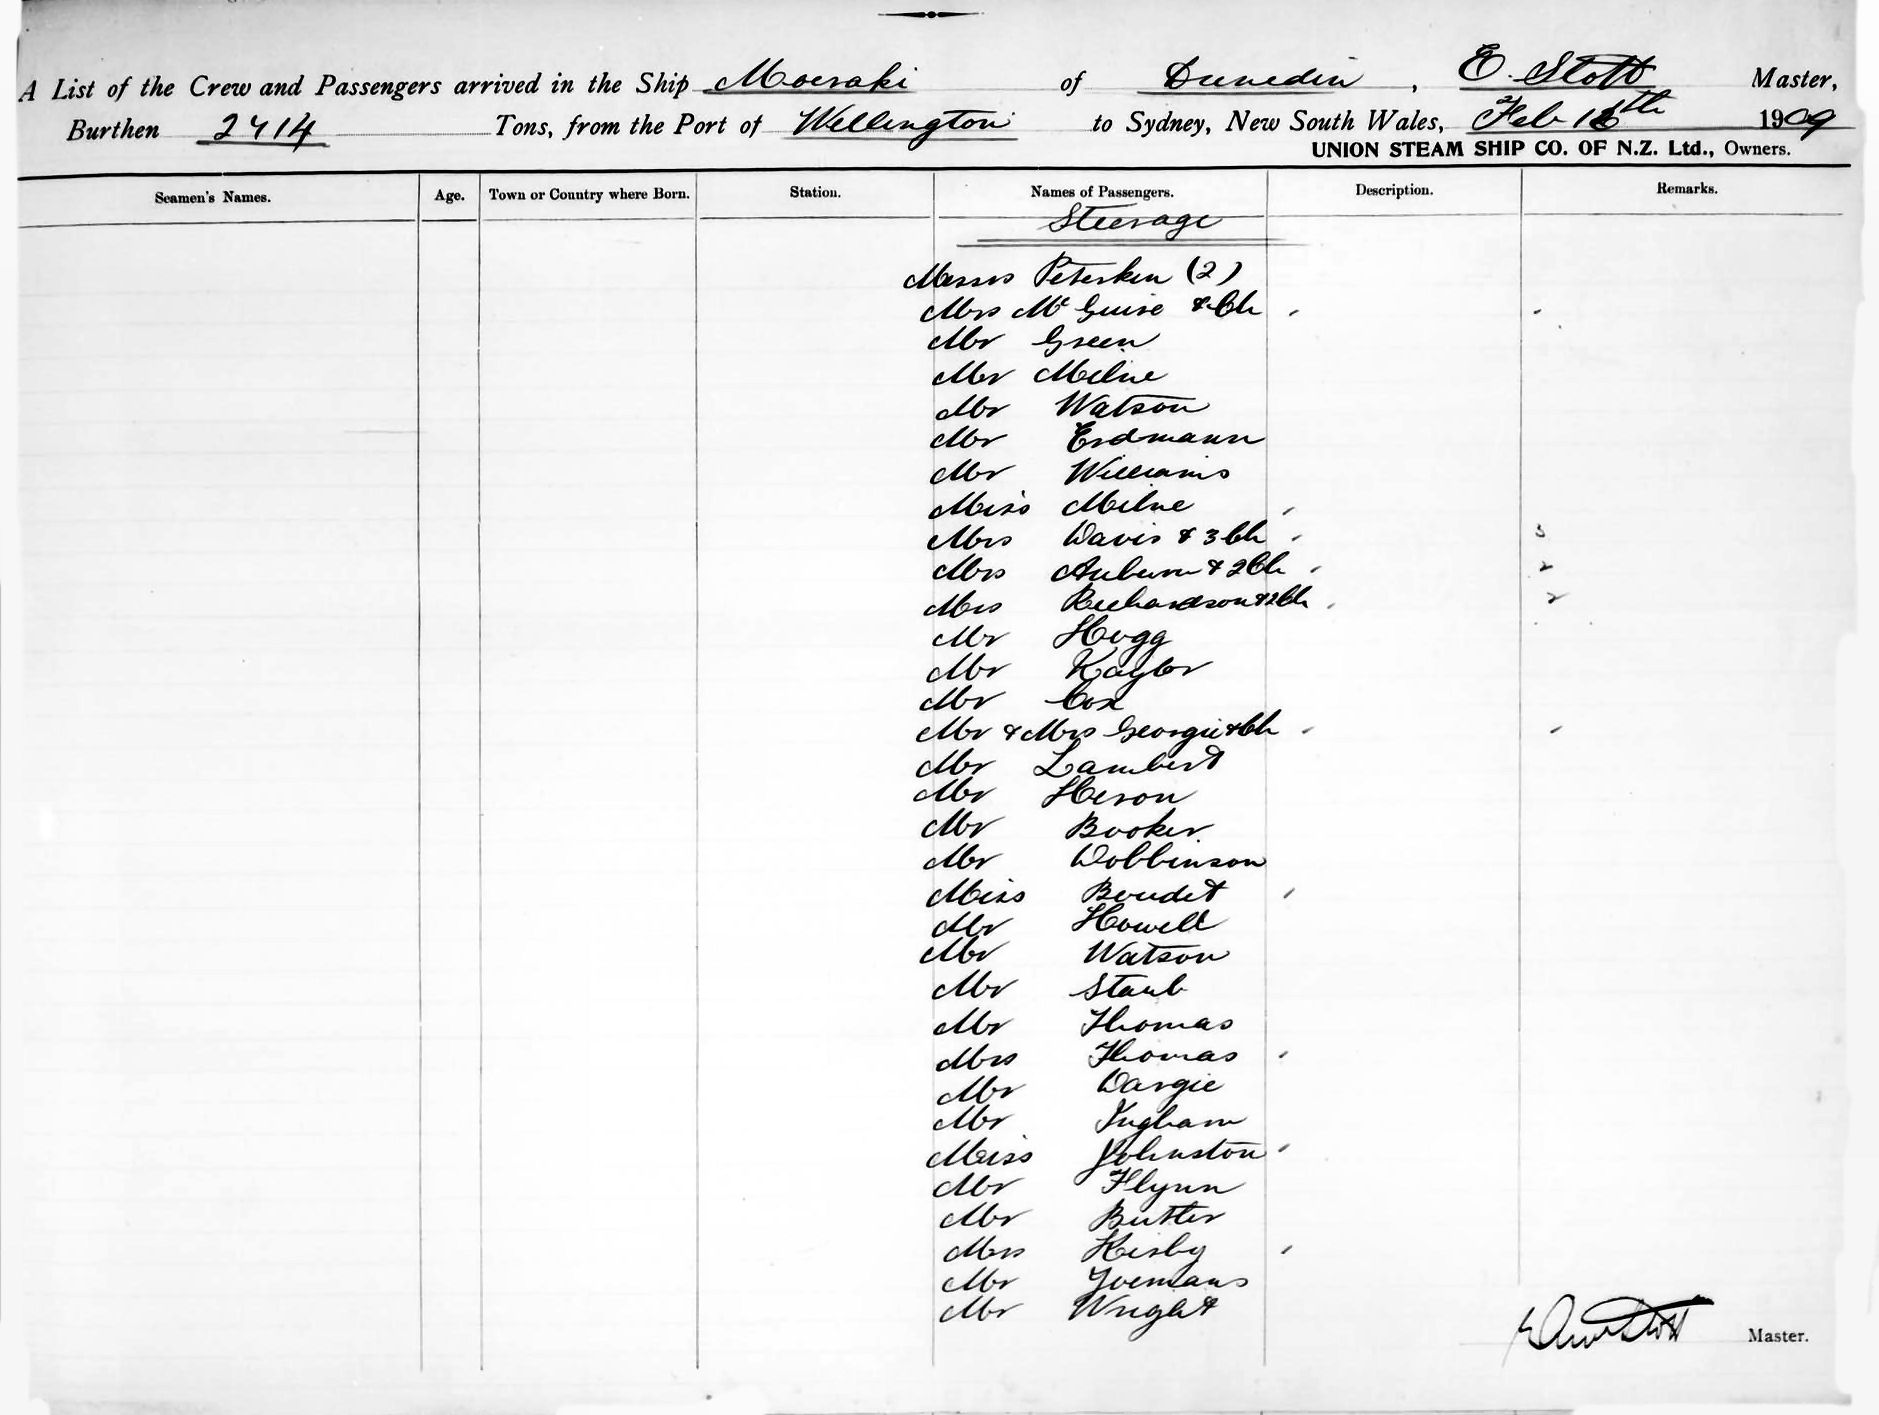 A List of the Crew and Passengers arrived in the Ship Moeraki of Dunedin, E. Stott Master,
Burthen 2714 Tons, from the Port of Wellington to Sydney, New South Wales, Feb 1909
UNION STEAM SHIP CO. OF N.Z. Ltd., Owners.
Seamen's Names. Age. Town or Country where Born. Station. Names of Passengers. Description. Remarks.
Steerage
Messrs Peterken (2)
Mrs McGuire & Ch
Mr Green
Mr Milne
Mr Watson
Mr Erdmann
Mr Williams
Miss Milne
Mrs Davis & 3 Ch 3
Mrs Auburn & 2 Ch 2
Mrs Richardson & 2 Ch 2
Mr Hogg
Mr Kaylor
Mr Cox
Mr & Mrs Georgie & Ch
Mr Lambert
Mr Heron
Mr Booker
Mr Dobbinson
Miss Boudet
Mr Howell
Mr Watson
Mr Staub
Mr Thomas
Mrs Thomas
Mr Dargie
Mr Ingham
Miss Johnston
Mr Flynn
Mr Butler
Mrs Kisby
Mr Yoemans
Mr Wright
Master.